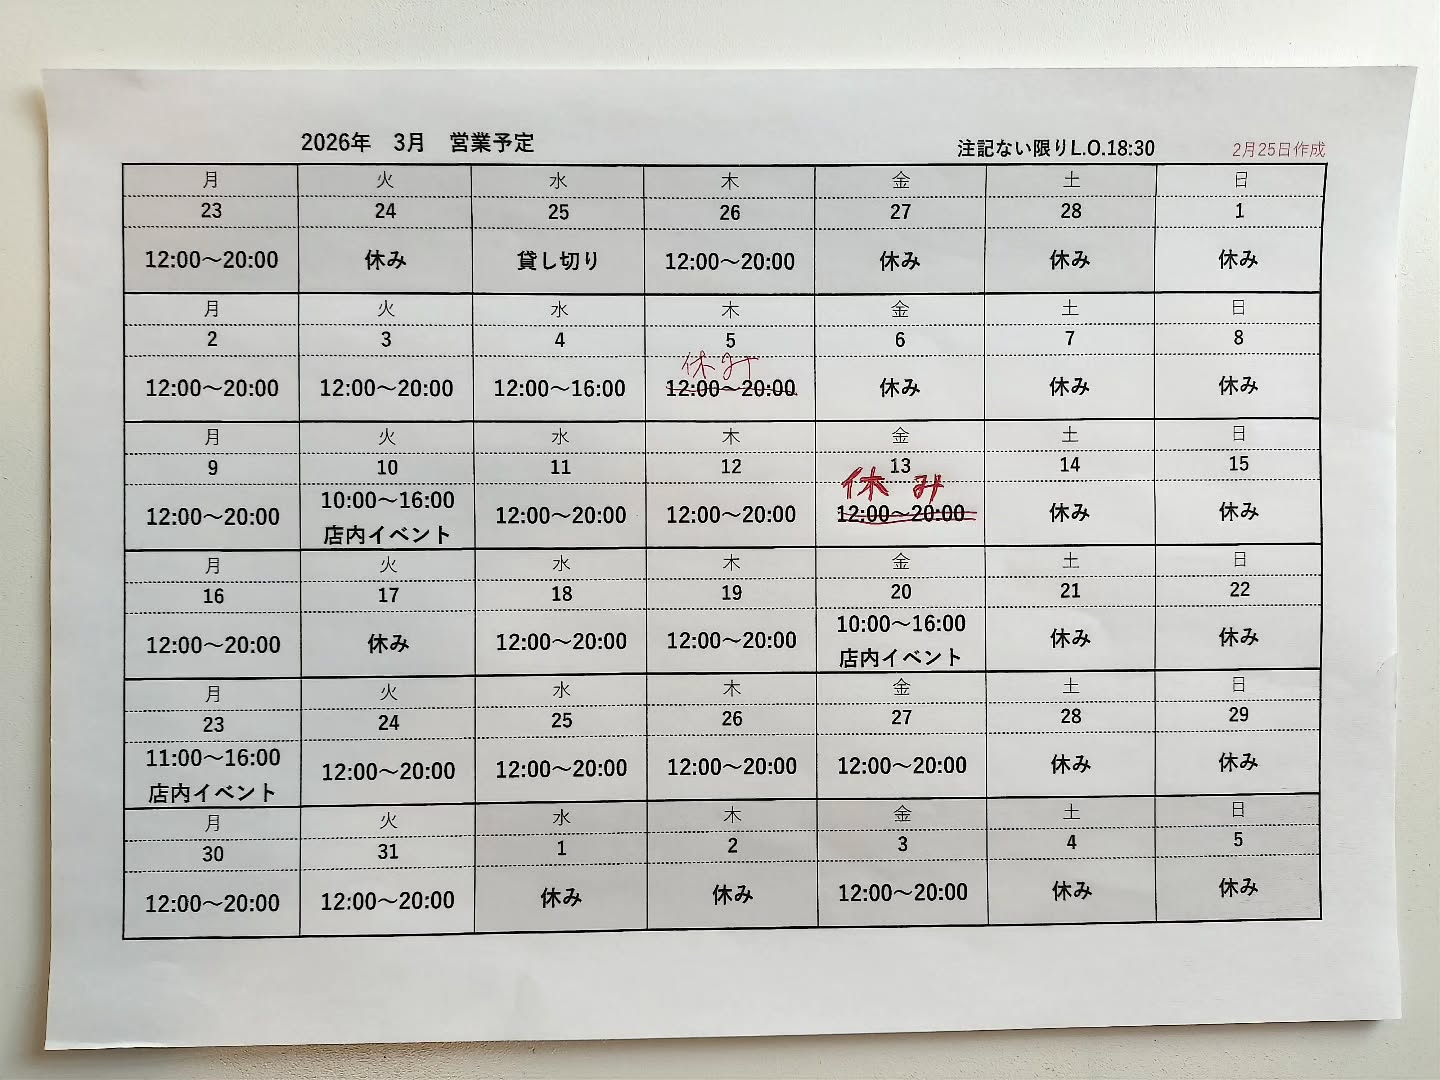 2026年 3月 営業予定 注記ない限りL.O.18:30 2月25日作成
月 火 水 木 金 土 日
23 24 25 26 27 28 1
12:00～20:00 休み 貸し切り 12:00～20:00 休み 休み 休み
月 火 水 木 金 土 日
2 3 4 5 6 7 8
休み
12:00～20:00 12:00～20:00 12:00～16:00 12:00～20:00 休み 休み 休み
月 火 水 木 金 土 日
9 10 11 12 13 14 15
休み
12:00～20:00 10:00～16:00 12:00～20:00 12:00～20:00 12:00～20:00 休み 休み
店内イベント
月 火 水 木 金 土 日
16 17 18 19 20 21 22
12:00～20:00 休み 12:00～20:00 12:00～20:00 10:00～16:00 休み 休み
店内イベント
月 火 水 木 金 土 日
23 24 25 26 27 28 29
11:00～16:00 12:00～20:00 12:00～20:00 12:00～20:00 12:00～20:00 休み 休み
店内イベント
月 火 水 木 金 土 日
30 31 1 2 3 4 5
12:00～20:00 12:00～20:00 休み 休み 12:00～20:00 休み 休み